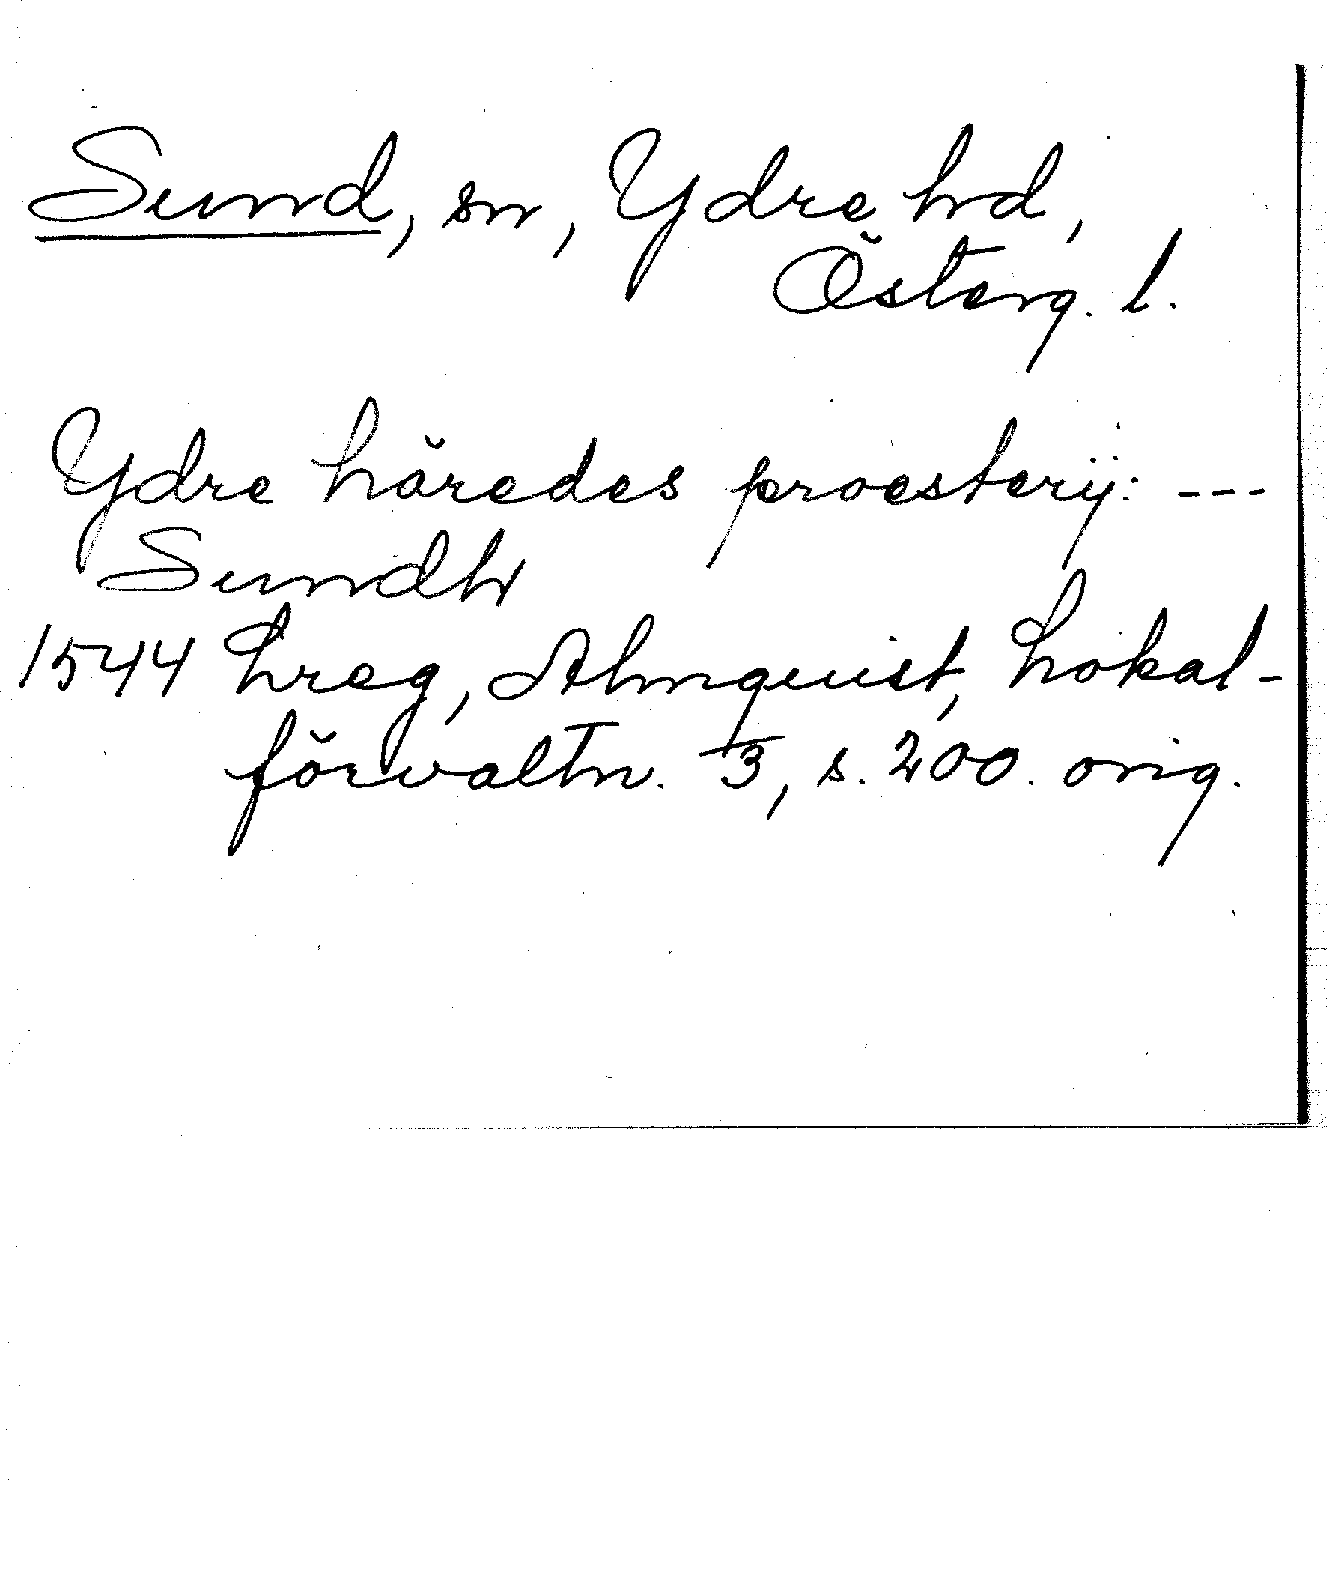 Sund, sn, Ydre hd,
Österg. l.
Ydre häredes proesterij: ---
Sundh
1544 Lreg, Almquist, Lokal-
förvaltn. 3, s. 200. orig.